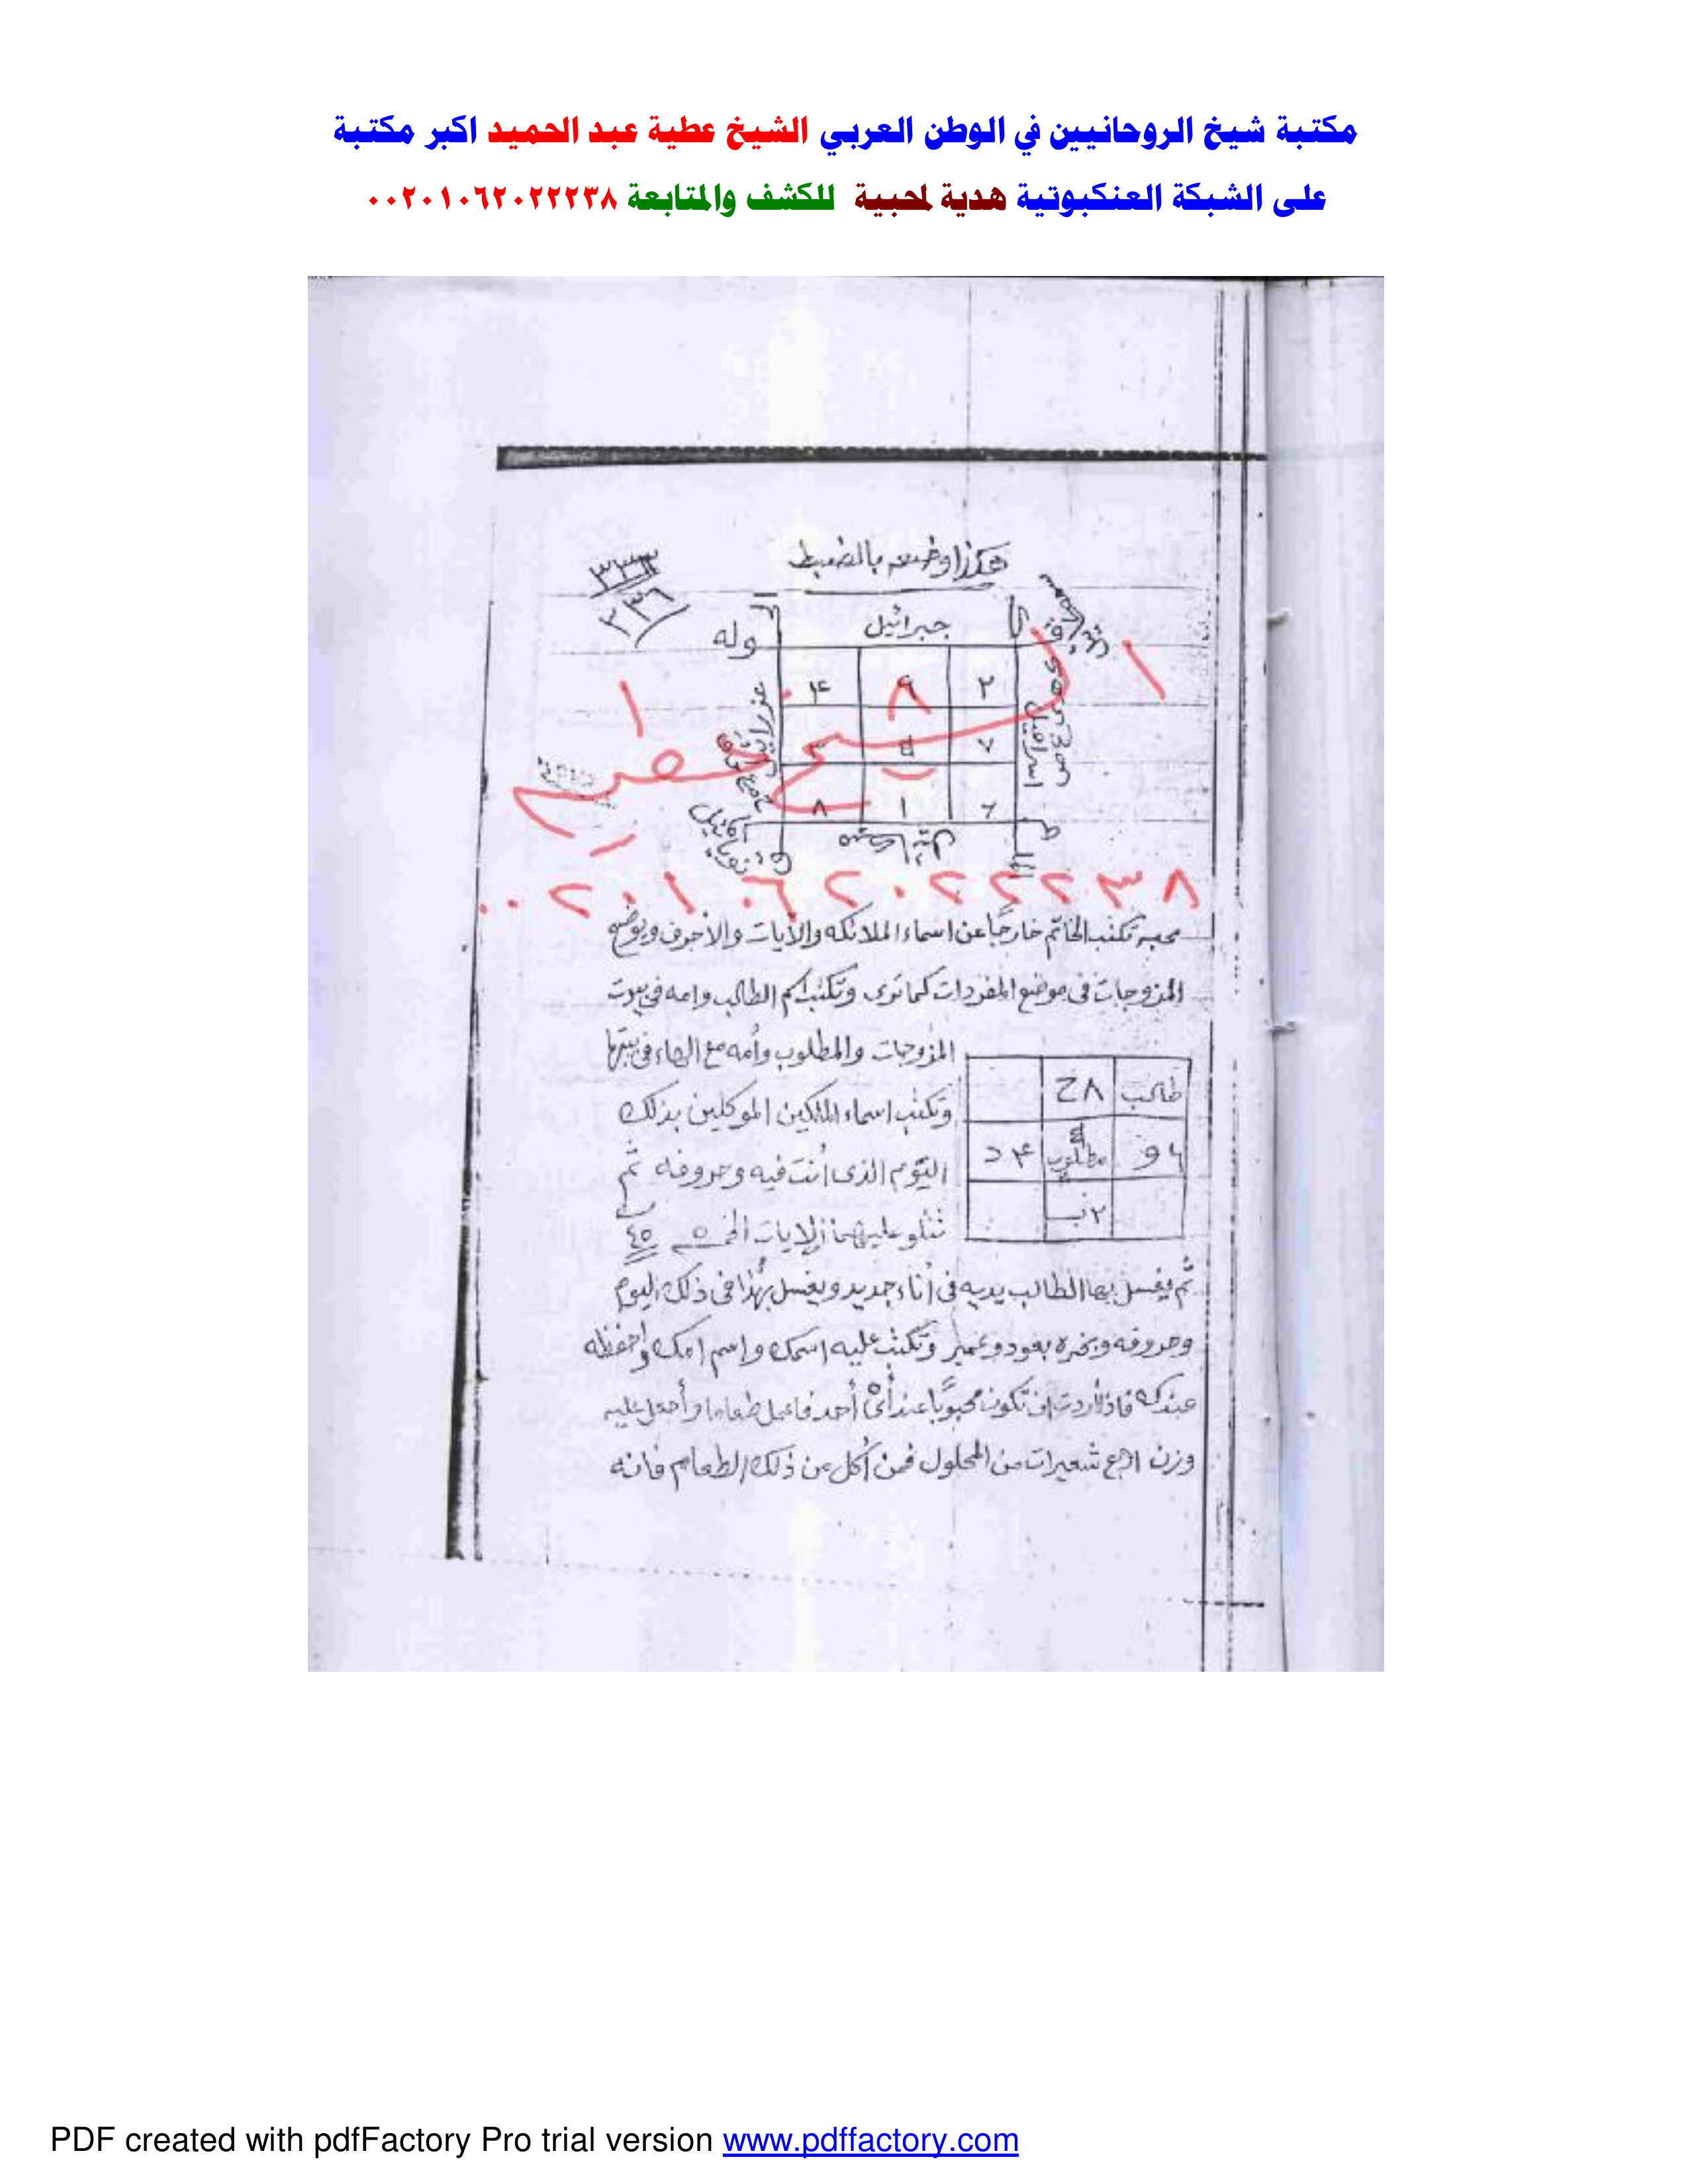 مكتبة شيخ الروحانيين في الوطن العربي الشيخ عطية عبد الحميد اكبر مكتبة
على الشبكة العنكبوتية هدية لمحبية للكشف والمتابعة ٠٠٢٠١٠٦٢٠٢٢٢٣٨
هكذا وضعه بالضبط
٣٣٦
وله
جبرائيل
٢ ٩ ٤
اسرافيل
عزرائيل
٧
٦ ١ ٨
٠٠٢٠١٠٦٢٠٢٢٢٣٨
محبه تكتب الخاتم خارجًا عن اسماء الملائكه والأيات والأحرف ويوضع
المزوجات في موضع المفردات كما ترى وتكتب اسم الطالب وامه في بيوت
المزوجات والمطلوب وأمه مع الهاء في بيتها
طالب ٨ح
وتكتب اسماء الملكين الموكلين بذلك
٦و مطلوب ٤د
اليوم الذى أنت فيه وحروفه ثم
٢ب
تتلو عليهما الايات ٤٥
ثم يغسل بها الطالب يديه في أناء جديد ويغسل بهذا في ذلك اليوم
وحروفه وبخره بعود وعمبر وتكتب عليه اسمك واسم امك واحفظه
عندك فاذا أردت ان تكون محبوبًا عند أى أحد فاعمل طعاما وأجعل عليه
وزن اربع شعيرات من المحلول فمن أكل من ذلك الطعام فانه
PDF created with pdfFactory Pro trial version www.pdffactory.com